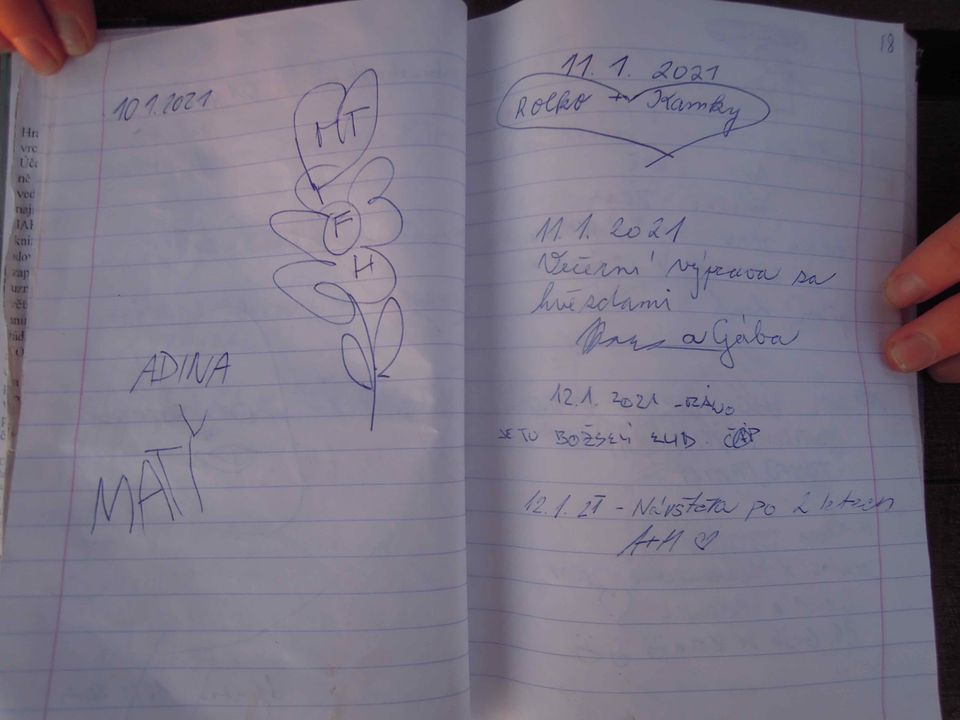 10.1.2021
MT
F
H
ADINA
MATÝ
18
11. 1. 2021
Rolko + Kamky
11.1. 2021
Večerní výprava sa
hvězdami
a Gába
12.1. 2021 - RÁNO
JE TO BOŽSKÝ KLID. ČÁP
12.1.21 - Návštěva po 2 letech
A+M ♡